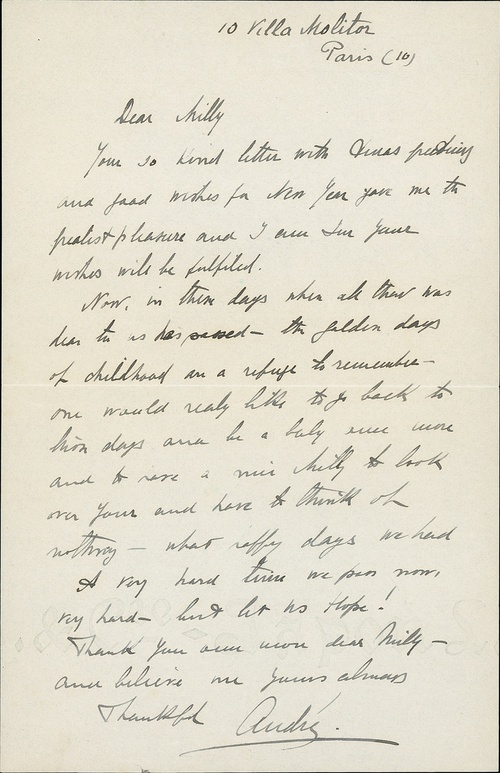 10 Villa Molitor
Paris (16)
Dear Milly
Your so kind letter with Xmas greeting
and good wishes for New Year gave me the
greatest pleasure and I am sur your
wishes will be fulfiled.
Now, in these days when all that was
dear to us has passed – the golden days
of childhood are a refuge to remember –
one would realy like to go back to
those days and be a baby once more
and to have a nice Milly to look
over your and have to think of
nothing – what happy days we had
A very hard time we pass now,
very hard – but let us Hope!
Thank you once more dear Milly –
and believe me yours always
Thankful André.